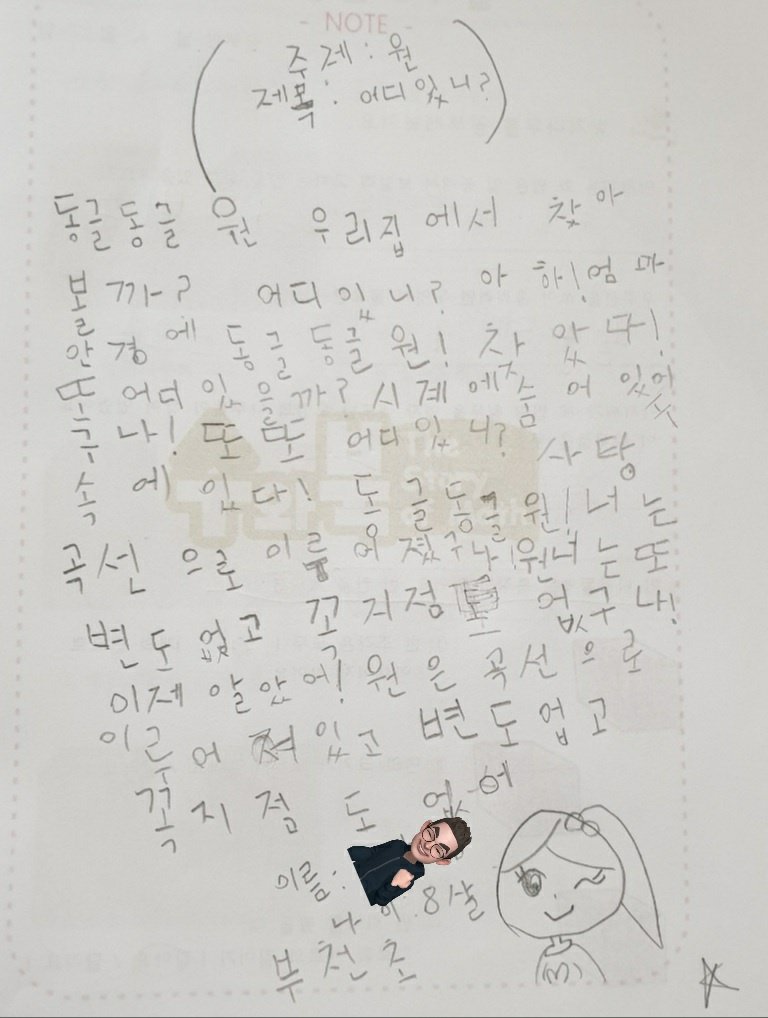 - NOTE -
주제 : 원
제목 : 어디있니?
동글동글 원 우리집에서 찾아
볼까? 어디있니? 아하! 엄마
안경에 동글동글 원! 찾았다!
또 어디있을까? 시계에 숨어 있었
구나! 또또 어디있니? 사탕
속에 있다! 동글동글 원! 너는
곡선으로 이루어졌구나! 원너는 또
변도 없고 꼭지점도 없구나!
이제 알았어! 원은 곡선으로
이루어져있고 변도 업고
꼭지점도 없어
이름:
나이:8살
부천초